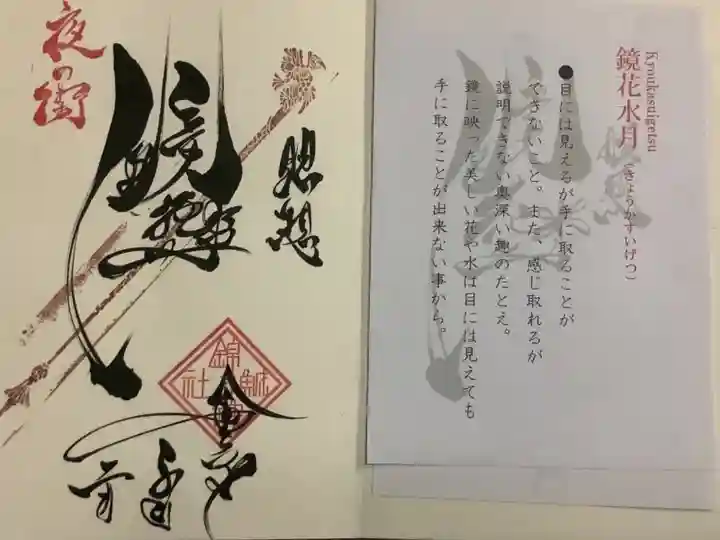 Kyoukasuigetsu
鏡花水月(きょうかすいげつ)
●目には見えるが手に取ることが
できないこと。また、感じ取れるが
説明できない奥深い趣のたとえ。
鏡に映った美しい花や水は目には見えても
手に取ることが出来ない事から。
夜の街
鏡
錦
社